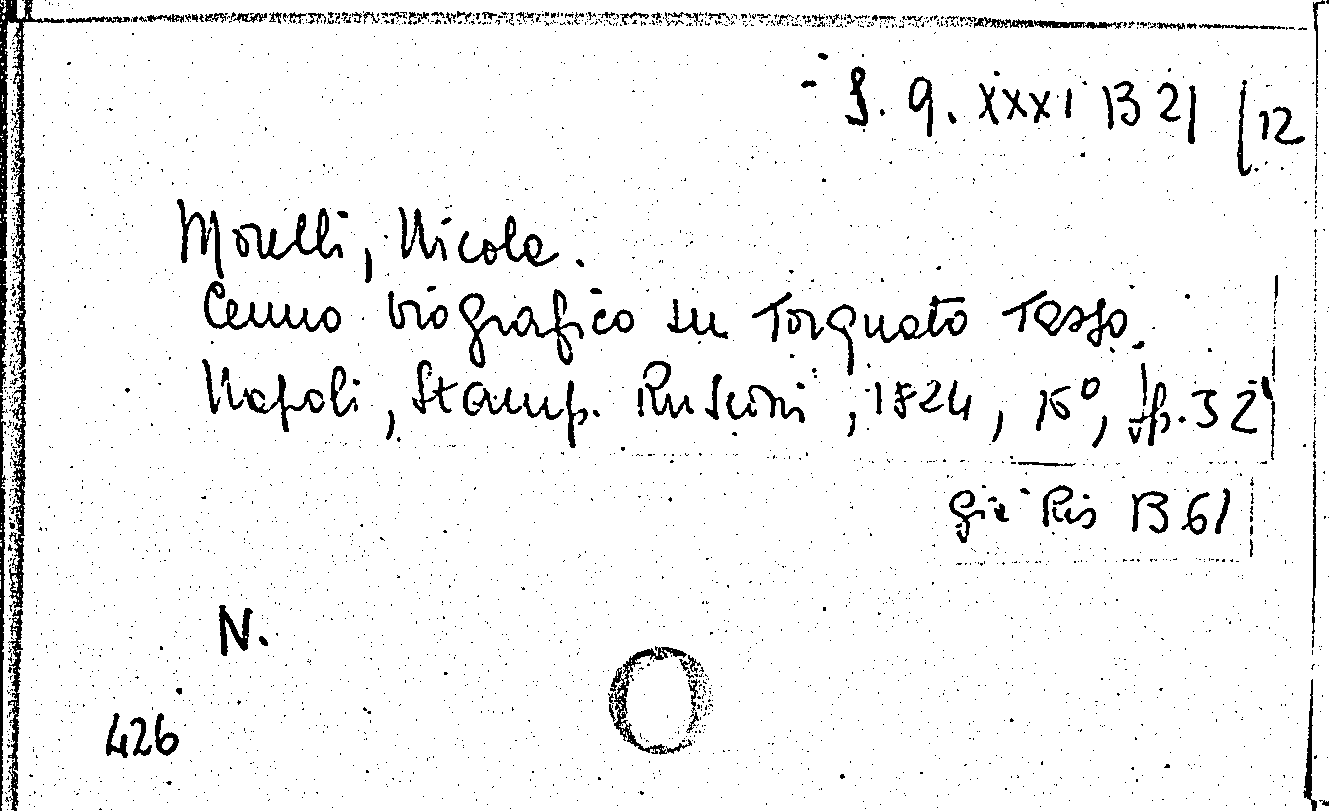 S. 9. XXXI B 21 [12
Morelli, Nicola.
Cenno biografico su Torquato Tasso.
Napoli, Stamp. Rusconi, 1824, 16°, p. 32
Già Ris B 61
N.
426